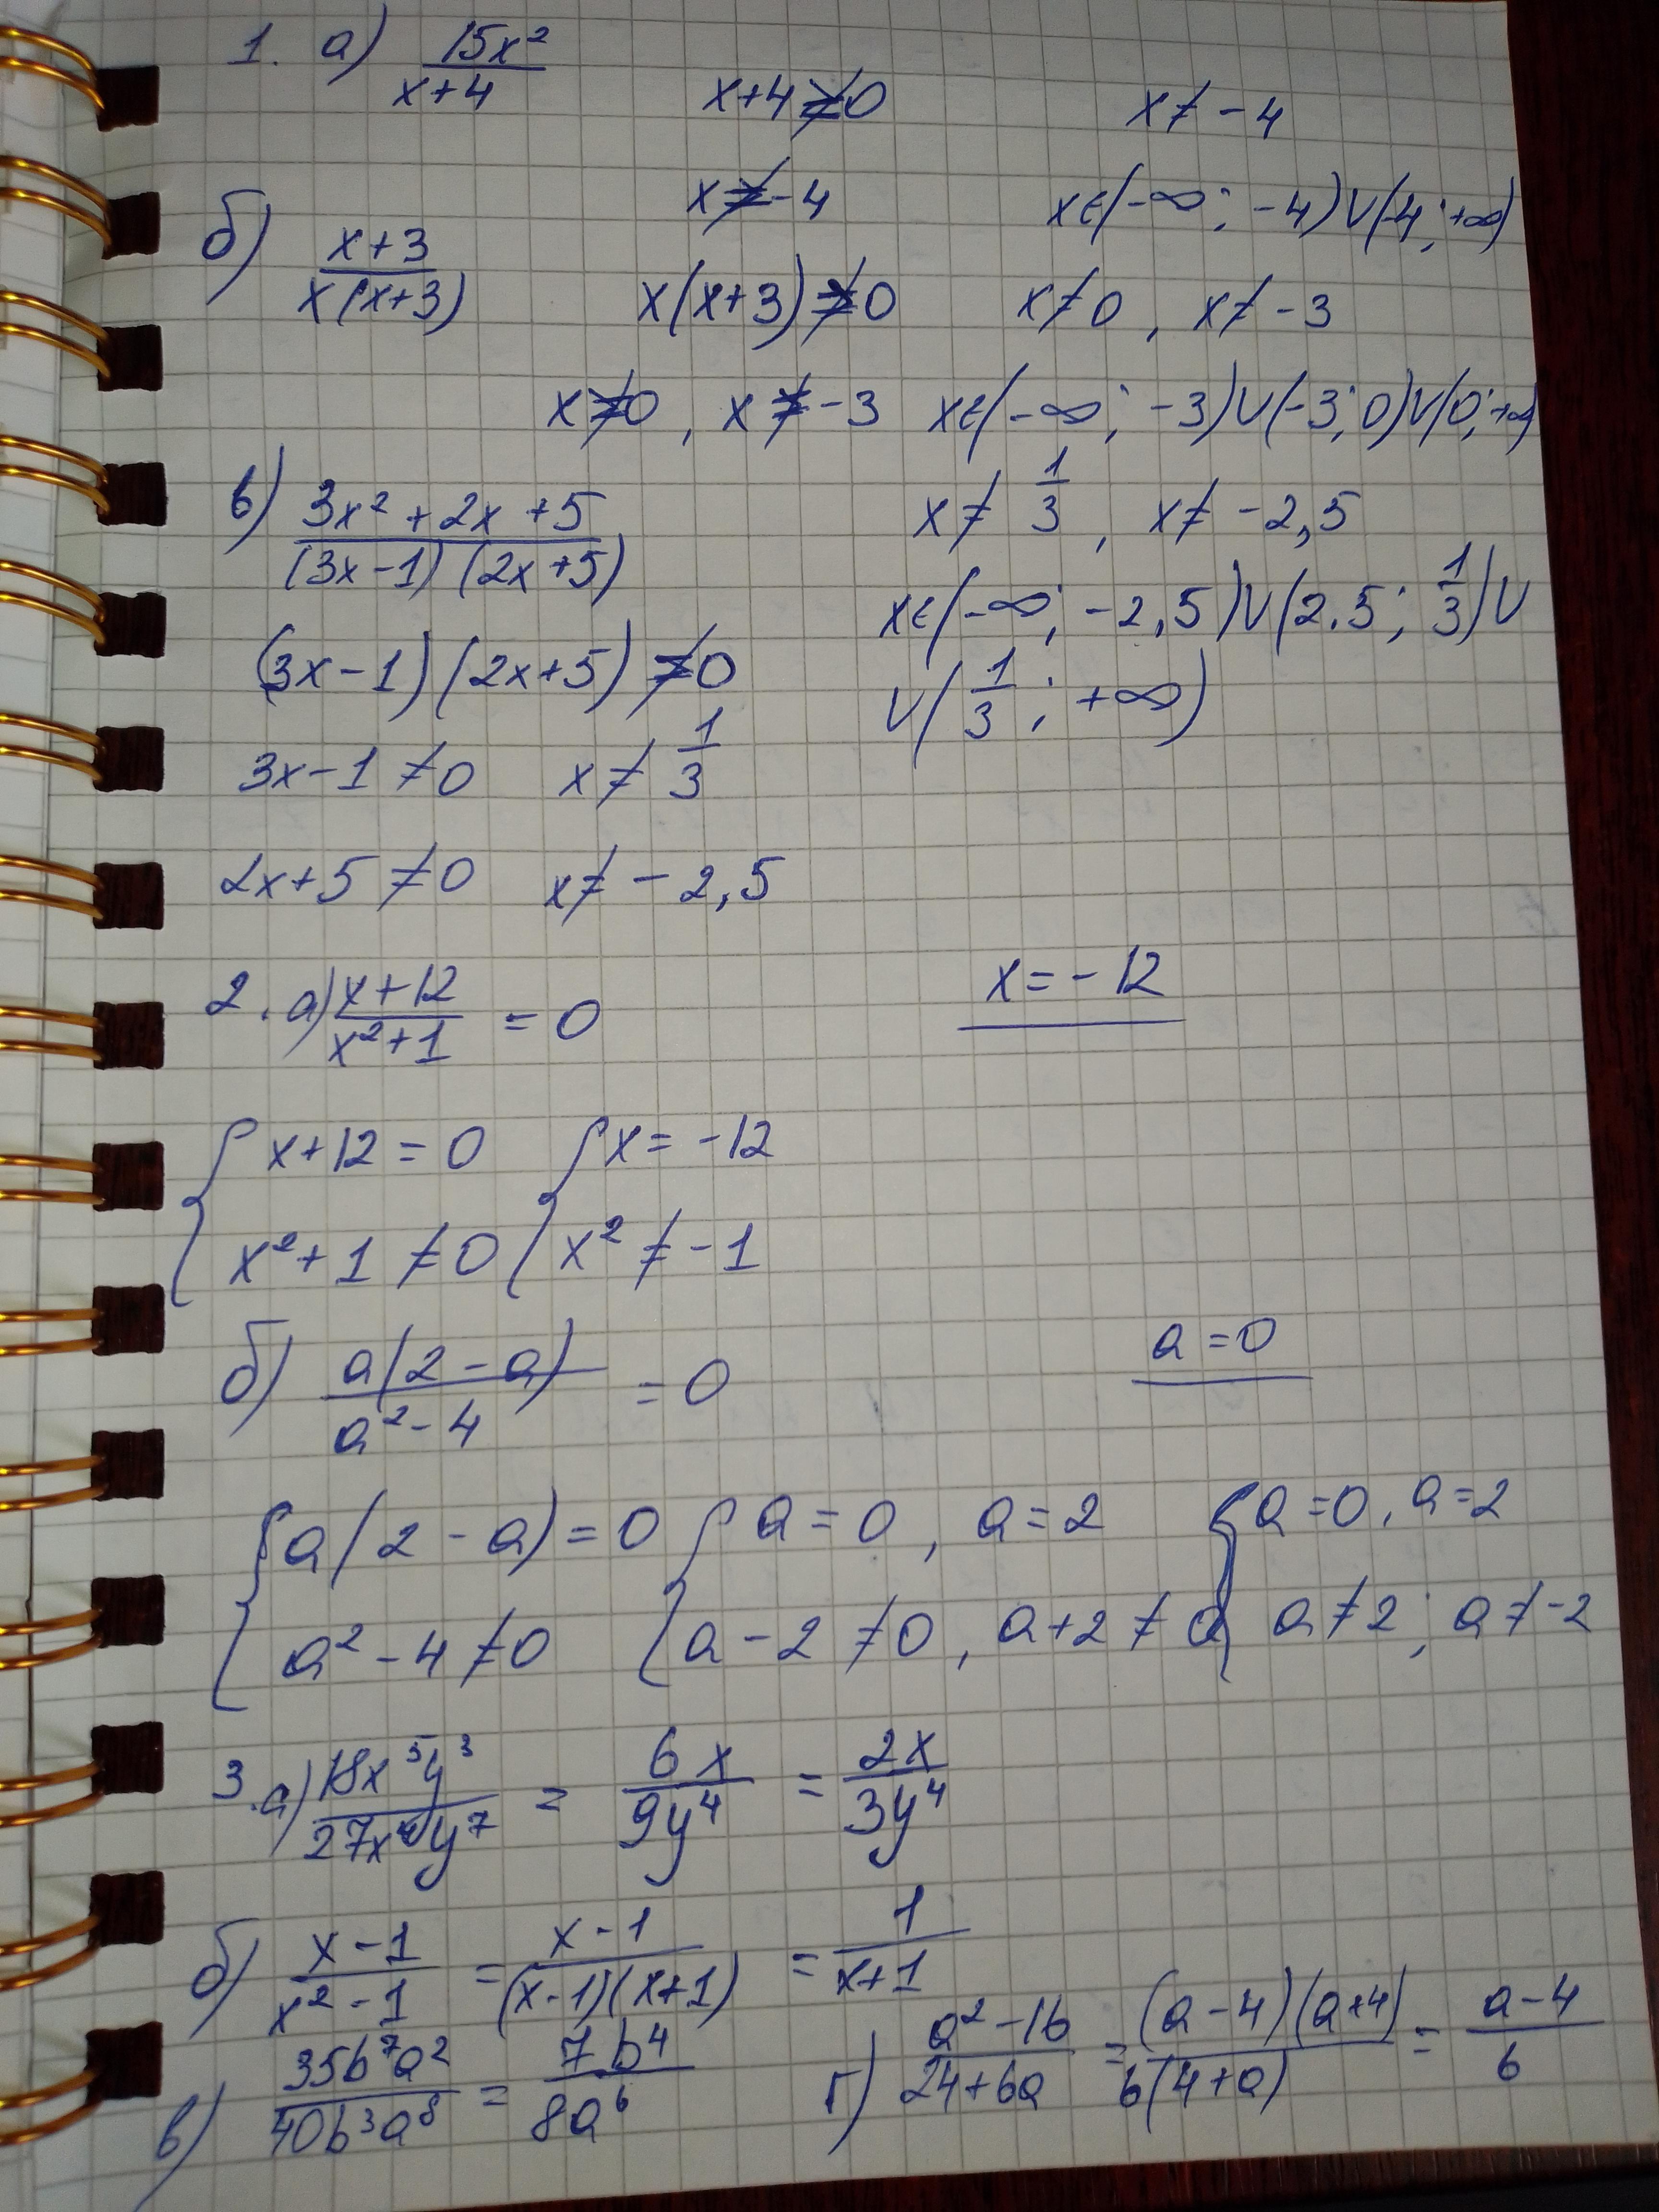 1. а) 15x² / x+4    x+4 ≠ 0    x ≠ -4
x ≠ -4    x∈(-∞; -4)∪(-4; +∞)
б) x+3 / x(x+3)    x(x+3) ≠ 0    x≠0, x ≠ -3
x ≠ 0, x ≠ -3    x∈(-∞; -3)∪(-3; 0)∪(0; +∞)
в) 3x² + 2x + 5 / (3x-1)(2x+5)    x ≠ 1/3, x ≠ -2,5
x∈(-∞; -2,5)∪(2.5; 1/3)∪
(3x-1)(2x+5) ≠ 0    ∪(1/3; +∞)
3x-1 ≠ 0    x ≠ 1/3
2x+5 ≠ 0    x ≠ -2,5
2. а) x+12 / x²+1 = 0    x = -12
{ x+12 = 0    { x = -12
{ x²+1 ≠ 0    { x² ≠ -1
б) a(2-a) / a²-4 = 0    a = 0
{ a(2-a) = 0    { a = 0, a = 2    { a = 0, a = 2
{ a²-4 ≠ 0    { a-2 ≠ 0, a+2 ≠ 0    { a ≠ 2; a ≠ -2
3. а) 18x⁵y³ / 27x⁴y⁷ = 6x / 9y⁴ = 2x / 3y⁴
б) x-1 / x²-1 = x-1 / (x-1)(x+1) = 1 / x+1
в) 35b⁷a² / 40b³a⁸ = 7b⁴ / 8a⁶    г) a²-16 / 24+6a = (a-4)(a+4) / 6(4+a) = a-4 / 6